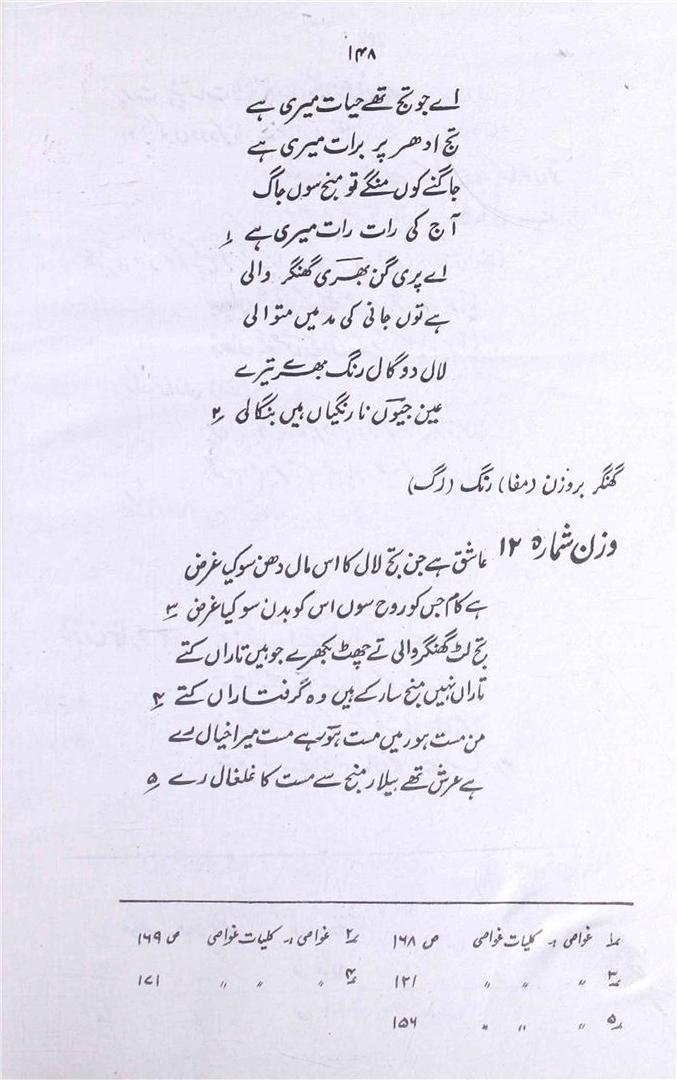 ۱۴۸
اے جو تج تھے حیات میری ہے
تج ادھر پر برات میری ہے
جاگنے کوں منگے تو منج سوں جاگ
آج کی رات رات میری ہے ۱؎
اے پری گن بھری گھنگر والی
ہے توں جانی کی مد میں متوالی
لال دو گال رنگ بھرے تیرے
عین جیوں نارنگیاں ہیں بنگالی ۲؎
گھنگر بروزن (مفا) رنگ (رگ)
وزن شمارہ ۱۲
عاشق ہے جن تج لال کا اس مال دھن سو کیا غرض
ہے کام جس کو روح سوں اس کو بدن سو کیا غرض ۳؎
تج لٹ گھنگر والی تے چھٹ بکھرے جو ہیں تاراں کتے
تاراں نہیں منج سار کے ہیں وہ گرفتاراں کتے ۴؎
من مست ہور میں مست ہور ہے مست میرا خیال رے
ہے عرش تھے بیلار منج سے مست کا غلغال رے ۵؎
۱؎ غواصی :- کلیات غواصی ص ۱۶۸ ۲؎ غواصی :- کلیات غواصی ص ۱۶۹
۳؎ " " " ۱۲۱ ۴؎ " " " ۱۷۱
۵؎ " " " ۱۵۶